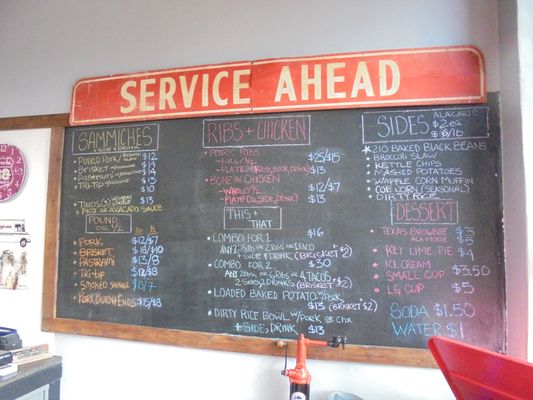 SERVICE AHEAD
SAMMICHES
+ SIDE + DRINK
Pulled Pork $12
Brisket $14
Pastrami $13
Tri-Tip $13
$10
Tacos (3) $13
+ Pico or Avacado Sauce
POUND or 1/2
lb 1/2
Pork $12/$7
Brisket $18/$10
Pastrami $13/$8
Tri-tip $12/$8
Smoked Sausage
Pork Burnt Ends $15/$8
RIBS + CHICKEN
PORK RIBS
- FULL/ 1/2 $25/$15
- PLATE (RIBS, SIDE, DRINK) $13
BONE IN CHICKEN
- WHOLE/ 1/2 $12/$7
- PLATE (SIDE, DRINK) $13
THIS + THAT
COMBO FOR 1 $16
SIDE + DRINK (BRISKET +$2)
COMBO FOR 2 $30
ANY OR 6 RIBS OR 4 TACOS
2 SIDES, 2 DRINKS (BRISKET +$2)
LOADED BAKED POTATO W/ PORK
$13 (BRISKET +$2)
DIRTY RICE BOWL W/ PORK OR CHX
+ SIDE, DRINK $13
SIDES
ALACARTE
$2 ea
$6/lb
210 BAKED BLACK BEANS
BROCCOLI SLAW
KETTLE CHIPS
MASHED POTATOES
WAFFLE CORN MUFFIN
COB CORN (SEASONAL)
DIRTY RICE
DESSERT
TEXAS BROWNIE $3
ALA MODE $5
KEY LIME PIE $4
ICE CREAM
SMALL CUP $3.50
LG CUP $5
SODA $1.50
WATER $1